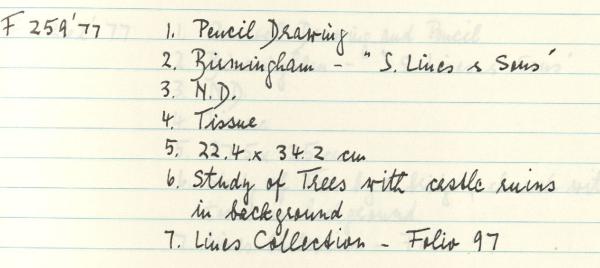 F 259'77 1. Pencil Drawing
2. Birmingham - "S. Lines & Sons"
3. N.D.
4. Tissue
5. 22.4 x 34.2 cm
6. Study of Trees with castle ruins
in background
7. Lines Collection - Folio 97